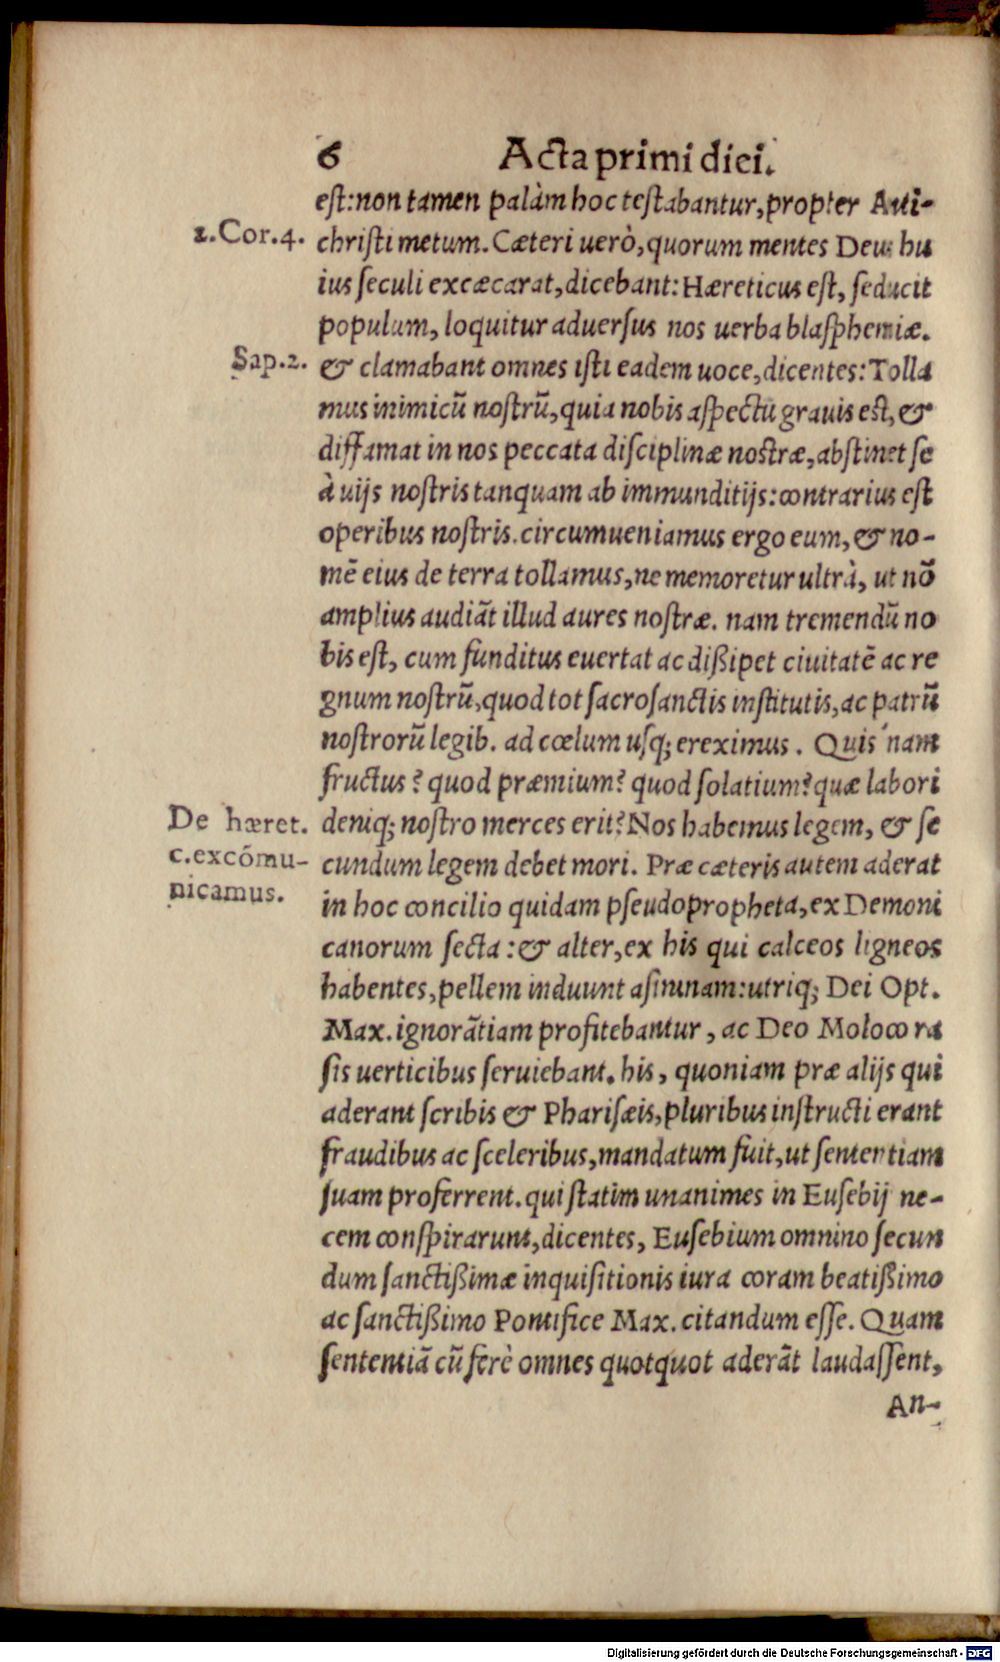 6 Acta primi diei.
est: non tamen palàm hoc testabantur, propter Anti-
2.Cor.4.
christi metum. Cæteri uerò, quorum mentes Deus hu
ius seculi excæcarat, dicebant: Hæreticus est, seducit
populum, loquitur aduersus nos uerba blasphemiæ.
Sap.2.
& clamabant omnes isti eadem uoce, dicentes: Tolla
mus inimicũ nostrũ, quia nobis aspectu grauis est, &
diffamat in nos peccata disciplinæ nostræ, abstinet se
à uijs nostris tanquam ab immunditijs: contrarius est
operibus nostris. circumueniamus ergo eum, & no-
mẽ eius de terra tollamus, ne memoretur ultrà, ut nõ
amplius audiãt illud aures nostræ. nam tremendũ no
bis est, cum funditus euertat ac dißipet ciuitatẽ ac re
gnum nostrũ, quod tot sacrosanctis institutis, ac patrũ
nostrorũ legib. ad cœlum usq; ereximus. Quis nam
fructus? quod præmium? quod solatium? quæ labori
De hæret.
c.excõmu-
nicamus.
deniq; nostro merces erit? Nos habemus legem, & se
cundum legem debet mori. Præ cæteris autem aderat
in hoc concilio quidam pseudopropheta, ex Demoni
canorum secta: & alter, ex his qui calceos ligneos
habentes, pellem induunt asininam: utriq; Dei Opt.
Max. ignorãtiam profitebantur, ac Deo Moloco ra
sis uerticibus seruiebant. his, quoniam præ alijs qui
aderant scribis & Pharisæis, pluribus instructi erant
fraudibus ac sceleribus, mandatum fuit, ut sententiam
suam proferrent. qui statim unanimes in Eusebij ne-
cem conspirarunt, dicentes, Eusebium omnino secun
dum sanctißimæ inquisitionis iura coram beatißimo
ac sanctißimo Pontifice Max. citandum esse. Quam
sententiã cũ ferè omnes quotquot aderãt laudassent,
An-
Digitalisierung gefördert durch die Deutsche Forschungsgemeinschaft - DFG